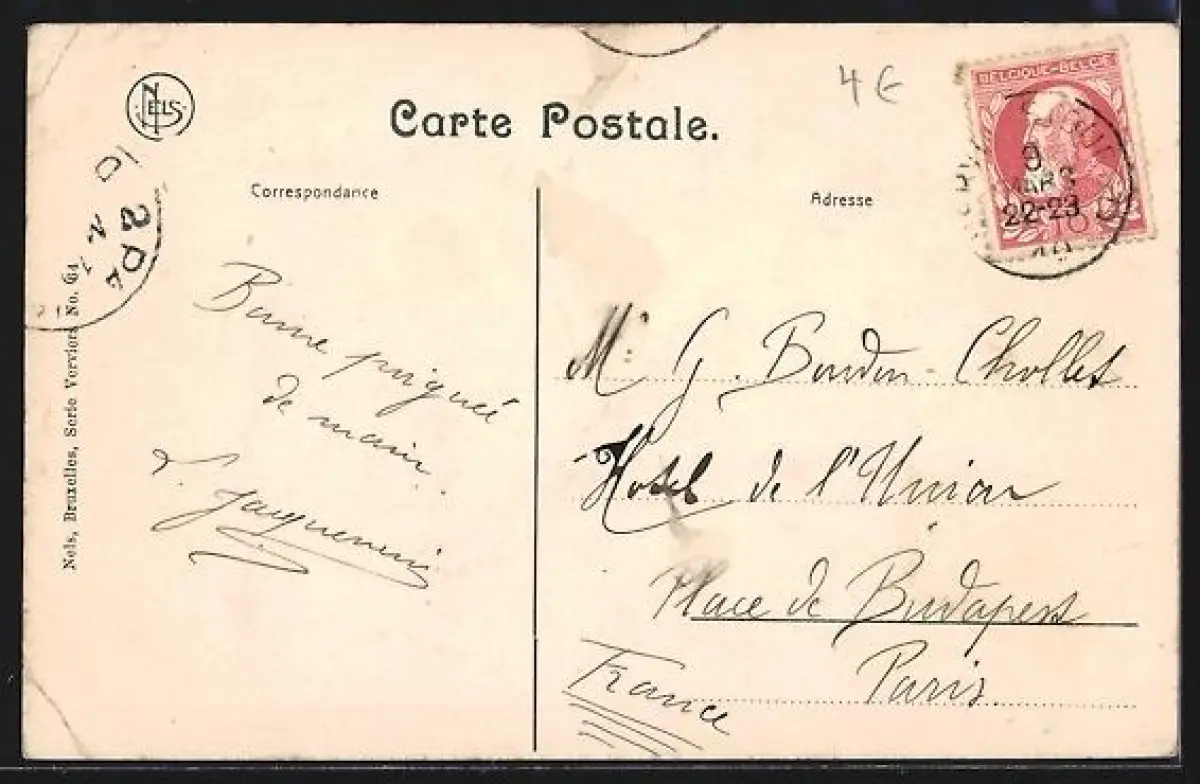 NELS
4 €
Carte Postale.
BELGIQUE-BELGIË
9
MARS
22-23
10
Correspondance
Adresse
Nels, Bruxelles, Serie Verviers No. 64
Bonne poignée
de main.
Mr G. Bourdon-Chollet
Hotel de l'Union
Place de Budapest
Paris
France